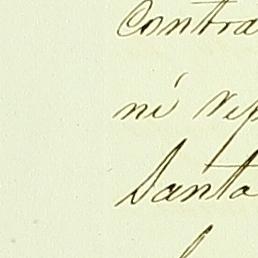 Contra
ni rep
Santa